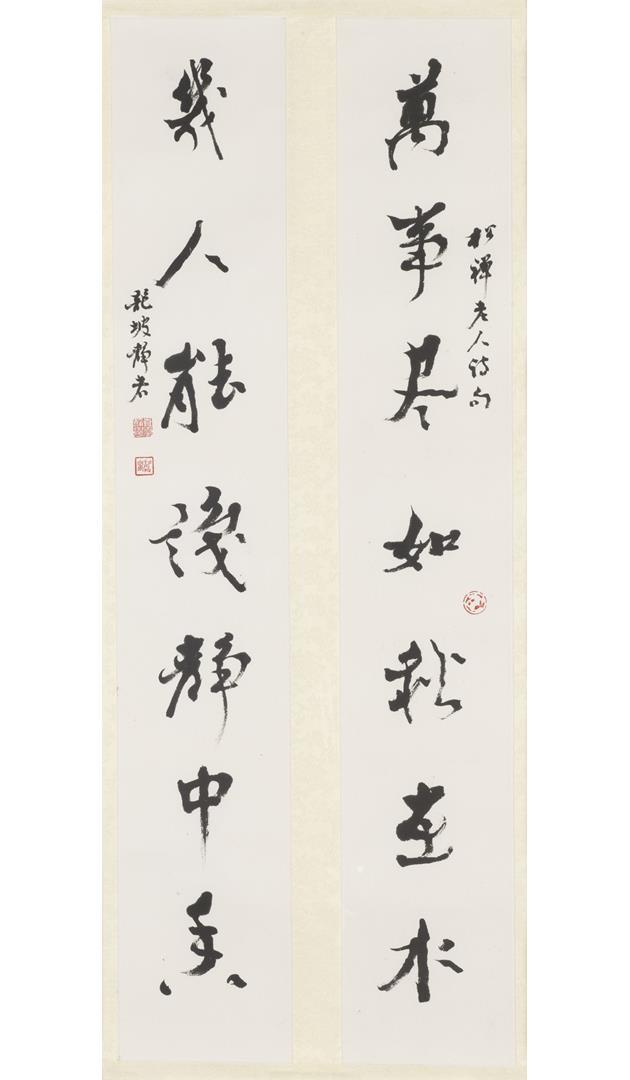 萬事尽如秋在水
松禪老人詩句
幾人能識靜中香
龍坡靜者